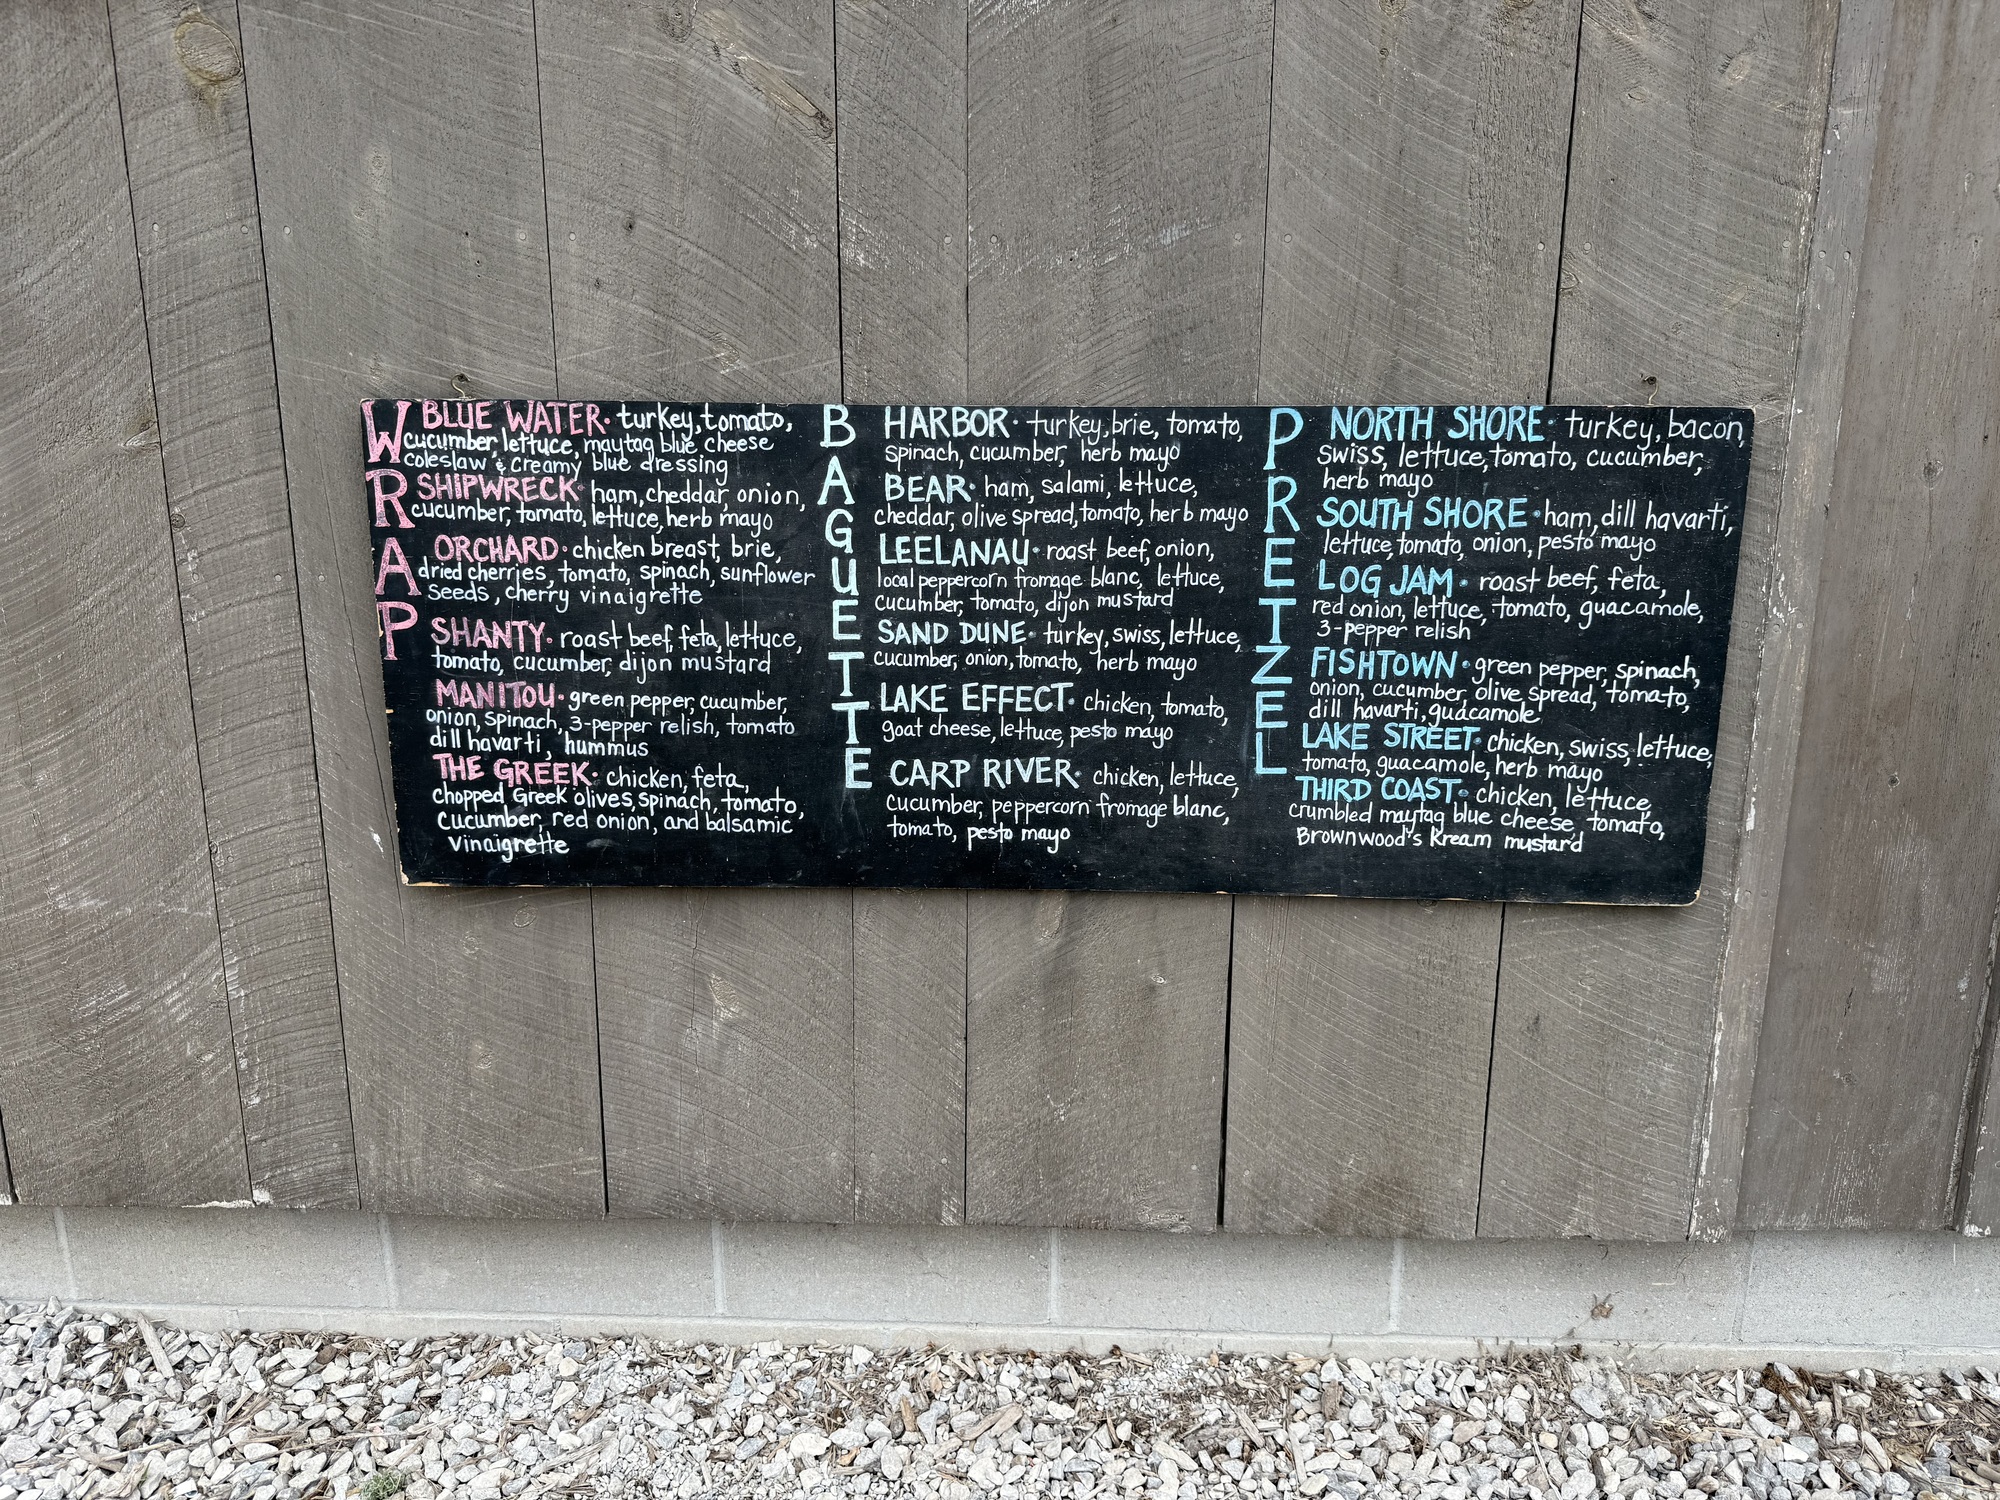 WRAP
BLUE WATER · turkey, tomato,
cucumber, lettuce, maytag blue cheese
coleslaw & creamy blue dressing
SHIPWRECK · ham, cheddar, onion,
cucumber, tomato, lettuce, herb mayo
ORCHARD · chicken breast, brie,
dried cherries, tomato, spinach, sunflower
seeds, cherry vinaigrette
SHANTY · roast beef, feta, lettuce,
tomato, cucumber, dijon mustard
MANITOU · green pepper, cucumber,
onion, spinach, 3-pepper relish, tomato
dill havarti, hummus
THE GREEK · chicken, feta,
chopped Greek olives, spinach, tomato,
cucumber, red onion, and balsamic
vinaigrette
BAGUETTE
HARBOR · turkey, brie, tomato,
spinach, cucumber, herb mayo
BEAR · ham, salami, lettuce,
cheddar, olive spread, tomato, herb mayo
LEELANAU · roast beef, onion,
local peppercorn fromage blanc, lettuce,
cucumber, tomato, dijon mustard
SAND DUNE · turkey, swiss, lettuce,
cucumber, onion, tomato, herb mayo
LAKE EFFECT · chicken, tomato,
goat cheese, lettuce, pesto mayo
CARP RIVER · chicken, lettuce,
cucumber, peppercorn fromage blanc,
tomato, pesto mayo
PRETZEL
NORTH SHORE · turkey, bacon,
swiss, lettuce, tomato, cucumber,
herb mayo
SOUTH SHORE · ham, dill havarti,
lettuce, tomato, onion, pesto mayo
LOG JAM · roast beef, feta,
red onion, lettuce, tomato, guacamole,
3-pepper relish
FISHTOWN · green pepper, spinach,
onion, cucumber, olive spread, tomato,
dill havarti, guacamole
LAKE STREET · chicken, swiss, lettuce,
tomato, guacamole, herb mayo
THIRD COAST · chicken, lettuce,
crumbled maytag blue cheese, tomato,
Brownwood's Kream mustard